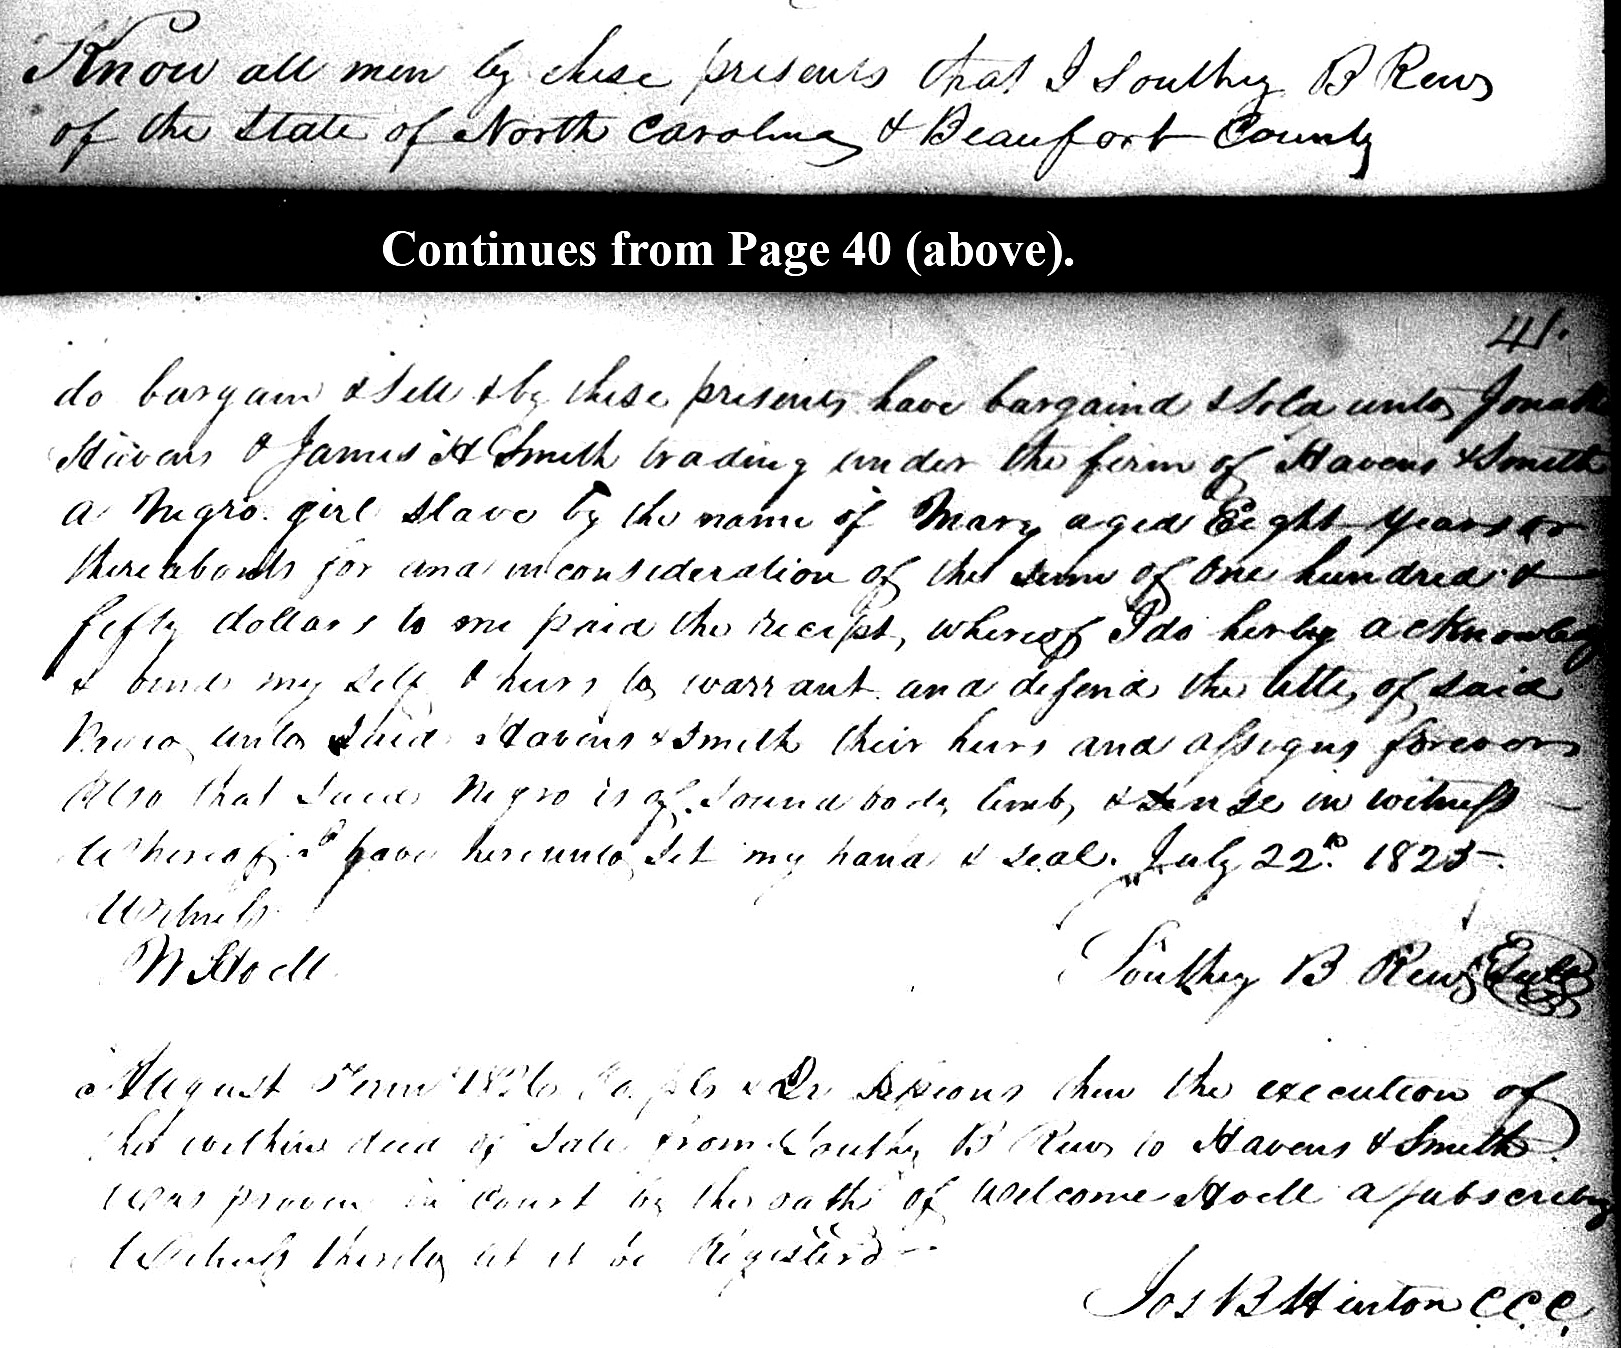 Know all men by these presents that I Southey B Rew
of the State of North Carolina & Beaufort County
Continues from Page 40 (above).
41.
do bargain & Sell & by these presents have bargaind & Sold unto Jonathan
Havens & James H Smith trading under the firm of Havens & Smith
a Negro girl Slave by the name of Mary aged Eight years or
thereabouts for and in consideration of the sum of One hundred &
fifty dollars to me paid the recipt, whereof I do herby acknowledg
& bind my self & heirs to warrant and defend the title, of said
Negro unto Said Havens & Smith their heirs and assigns forever
Also that Said Negro is of Sound body limb, & sense in witness
Whereof I have hereunto Set my hand & seal. July 22nd 1825.
Witness
W Hoell
Southey B Rew Seal
August Term 1826 & Qr Sessions then the execution of
the within deed of Sale from Southey B Rew to Havens & Smith
was proven in Court by the oath of Welcome Hoell a subscribing
Witness thereto let it be Registerd
Jos B Hinton C.C.C.